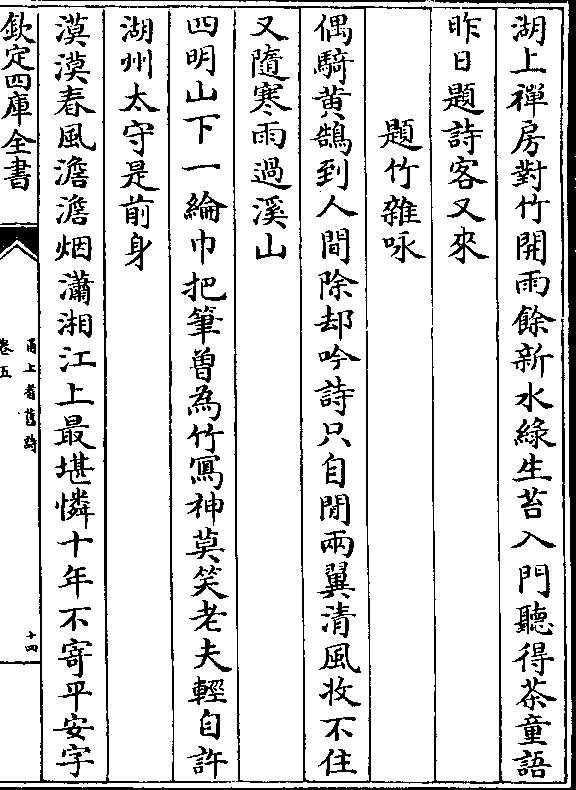 湖上禪房對竹開雨餘新水綠生苔入門聽得茶童語
昨日題詩客又來
題竹雜咏
偶騎黄鵠到人間除却吟詩只自閒兩翼清風收不住
又隨寒雨過溪山
四明山下一綸巾把筆曽為竹寫神莫笑老夫輕自許
湖州太守是前身
漠漠春風澹澹烟瀟湘江上最堪憐十年不寄平安字
欽定四庫全書
甬上耆舊詩
卷五
十四